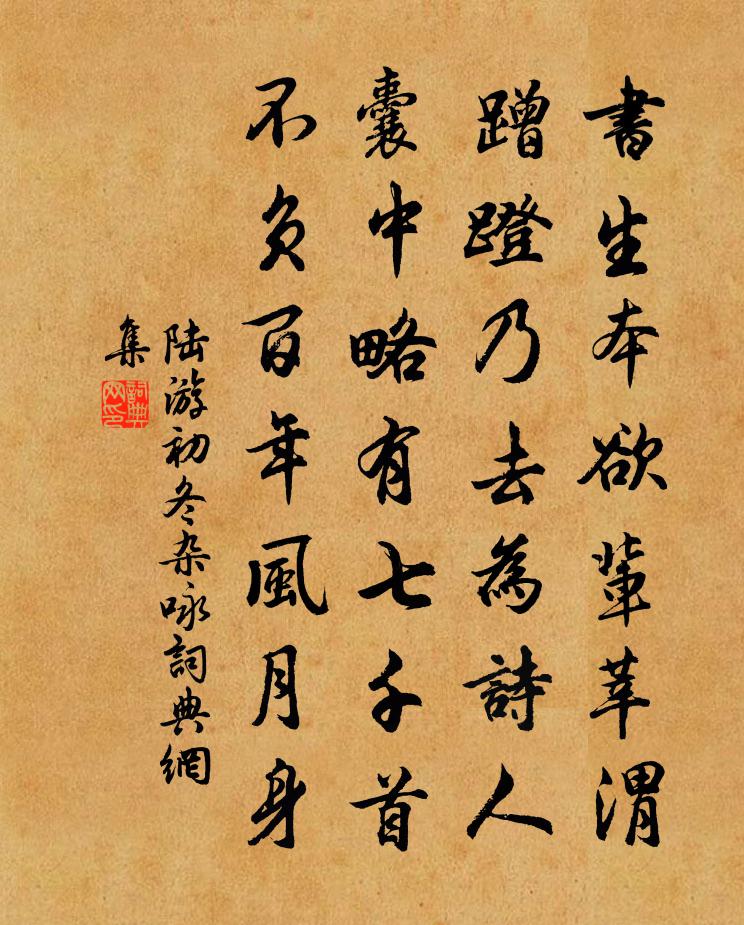 書生本欲輩莘渭
蹭蹬乃去為詩人
囊中略有七千首
不負百年風月身
陆游初冬杂咏詞典網
集
詞典
网印